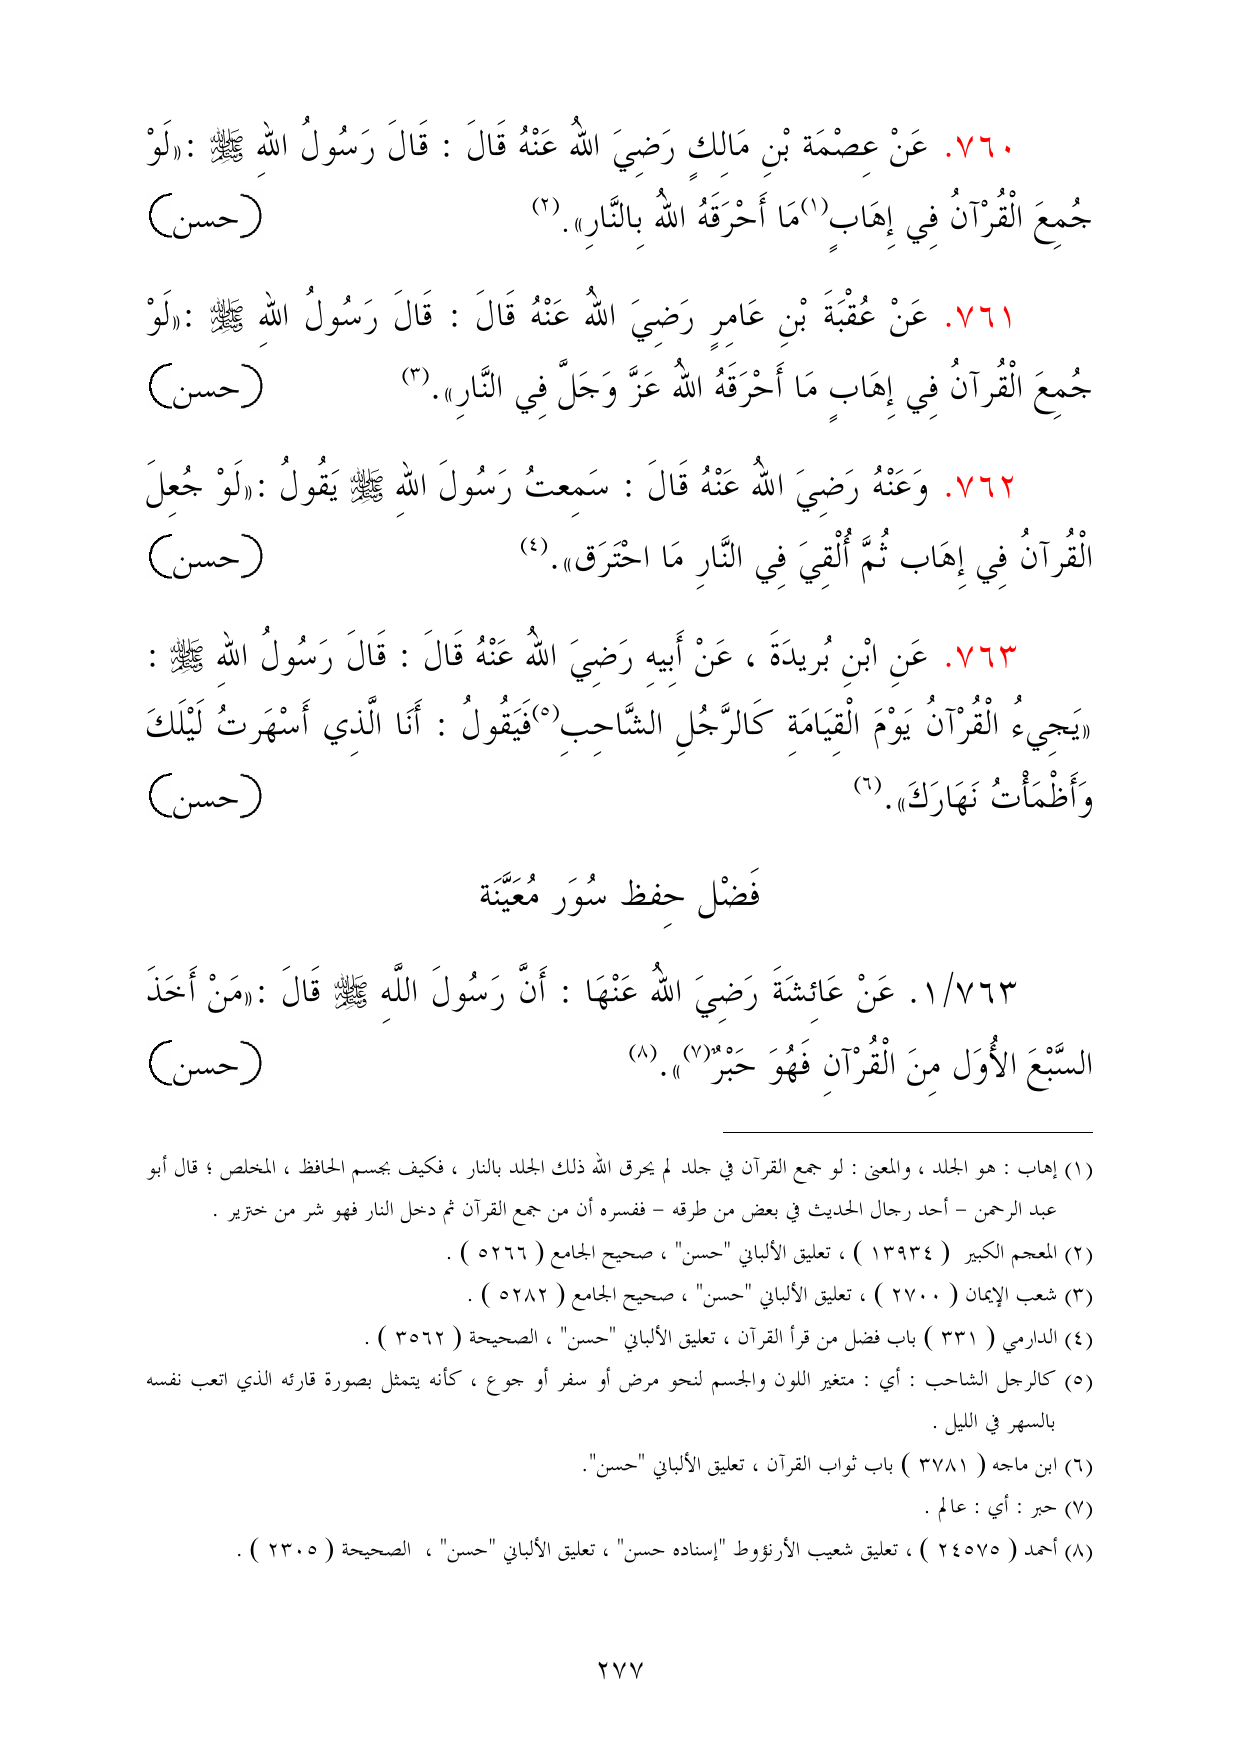 ٧٦٠. عَنْ عِصْمَة بْنِ مَالِكٍ رَضِيَ اللهُ عَنْهُ قَالَ : قَالَ رَسُولُ اللهِ ﷺ :«لَوْ
جُمِعَ الْقُرْآنُ فِي إِهَابٍ(١)مَا أَحْرَقَهُ اللهُ بِالنَّارِ».(٢) (حسن)
٧٦١. عَنْ عُقْبَةَ بْنِ عَامِرٍ رَضِيَ اللهُ عَنْهُ قَالَ : قَالَ رَسُولُ اللهِ ﷺ :«لَوْ
جُمِعَ الْقُرآنُ فِي إِهَابٍ مَا أَحْرَقَهُ اللهُ عَزَّ وَجَلَّ فِي النَّارِ».(٣) (حسن)
٧٦٢. وَعَنْهُ رَضِيَ اللهُ عَنْهُ قَالَ : سَمِعتُ رَسُولَ اللهِ ﷺ يَقُولُ :«لَوْ جُعِلَ
الْقُرآنُ فِي إِهَاب ثُمَّ أُلْقِيَ فِي النَّارِ مَا احْتَرَق».(٤) (حسن)
٧٦٣. عَنِ ابْنِ بُريدَةَ ، عَنْ أَبِيهِ رَضِيَ اللهُ عَنْهُ قَالَ : قَالَ رَسُولُ اللهِ ﷺ :
«يَجِيءُ الْقُرْآنُ يَوْمَ الْقِيَامَةِ كَالرَّجُلِ الشَّاحِبِ(٥)فَيَقُولُ : أَنَا الَّذِي أَسْهَرتُ لَيْلَكَ
وَأَظْمَأْتُ نَهَارَكَ».(٦) (حسن)
فَضْل حِفظ سُوَر مُعَيَّنَة
١/٧٦٣. عَنْ عَائِشَةَ رَضِيَ اللهُ عَنْهَا : أَنَّ رَسُولَ اللَّهِ ﷺ قَالَ :«مَنْ أَخَذَ
السَّبْعَ الأُوَل مِنَ الْقُرْآنِ فَهُوَ حَبْرٌ(٧)».(٨) (حسن)
(١) إهاب : هو الجلد ، والمعنى : لو جمع القرآن في جلد لم يحرق الله ذلك الجلد بالنار ، فكيف بجسم الحافظ ، المخلص ؛ قال أبو
عبد الرحمن – أحد رجال الحديث في بعض من طرقه – ففسره أن من جمع القرآن ثم دخل النار فهو شر من خنزير .
(٢) المعجم الكبير ( ١٣٩٣٤ ) ، تعليق الألباني "حسن" ، صحيح الجامع ( ٥٢٦٦ ) .
(٣) شعب الإيمان ( ٢٧٠٠ ) ، تعليق الألباني "حسن" ، صحيح الجامع ( ٥٢٨٢ ) .
(٤) الدارمي ( ٣٣١ ) باب فضل من قرأ القرآن ، تعليق الألباني "حسن" ، الصحيحة ( ٣٥٦٢ ) .
(٥) كالرجل الشاحب : أي : متغير اللون والجسم لنحو مرض أو سفر أو جوع ، كأنه يتمثل بصورة قارئه الذي اتعب نفسه
بالسهر في الليل .
(٦) ابن ماجه ( ٣٧٨١ ) باب ثواب القرآن ، تعليق الألباني "حسن".
(٧) حبر : أي : عالم .
(٨) أحمد ( ٢٤٥٧٥ ) ، تعليق شعيب الأرنؤوط "إسناده حسن" ، تعليق الألباني "حسن" ، الصحيحة ( ٢٣٠٥ ) .
٢٧٧